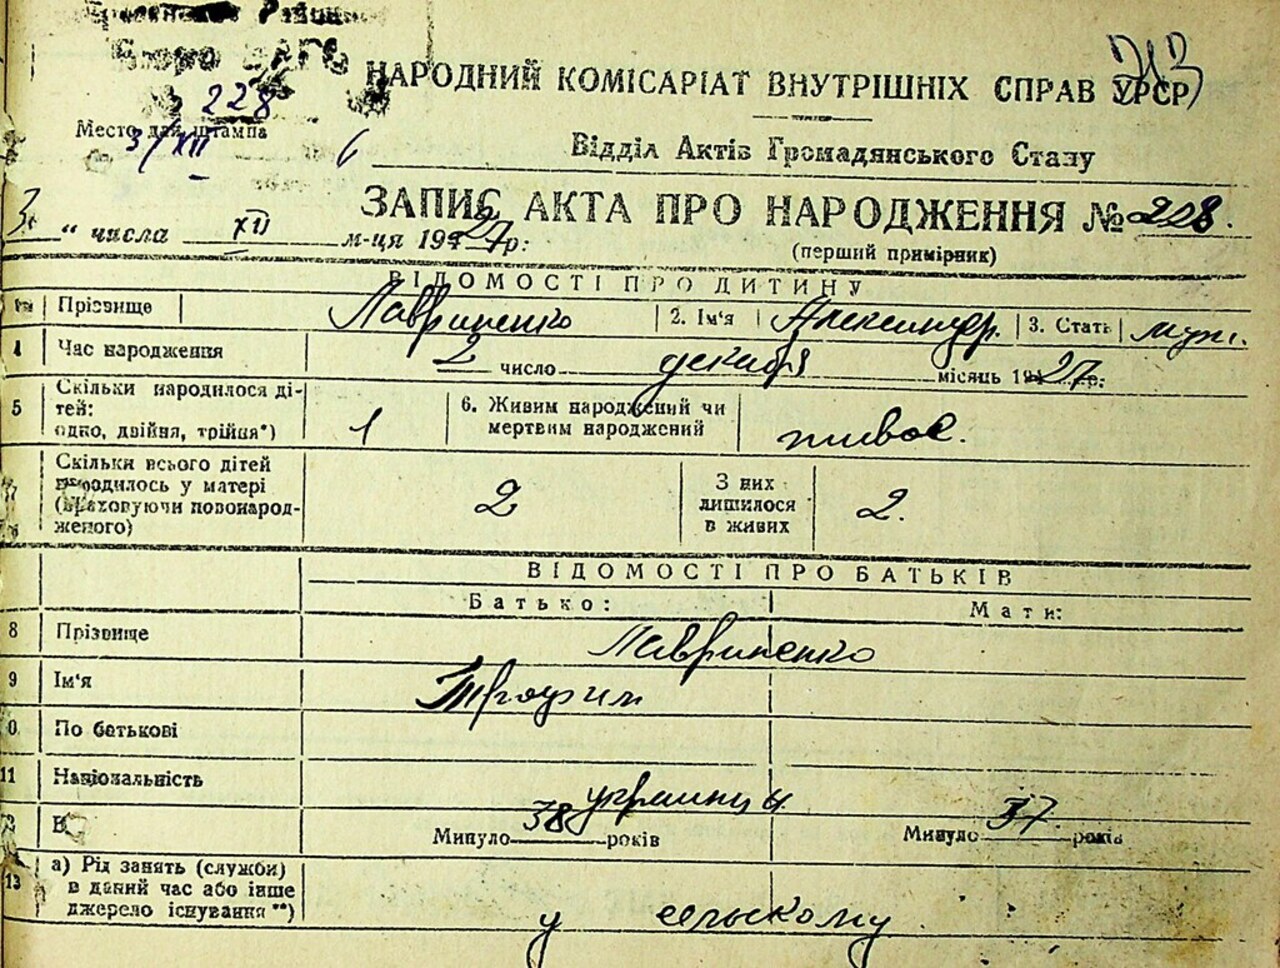 Бюро ЗАГС
228
213
НАРОДНИЙ КОМІСАРІАТ ВНУТРІШНІХ СПРАВ УРСР
Место для штампа
3/XII
6
Відділ Актів Громадянського Стану
ЗАПИС АКТА ПРО НАРОДЖЕННЯ № 228.
3 " числа XII м-ця 1927 р:
(перший примірник)
ВІДОМОСТІ ПРО ДИТИНУ
Прізвище Лавриненко 2. Ім'я Александр. 3. Стать муж.
4 Час народження 2 число декабря місяць 1927 р.
5 Скільки народилося дітей: одно, двійня, трійня*) 1 6. Живим народжений чи мертвим народжений живое.
Скільки всього дітей народилось у матері (враховуючи новонародженого) 2 З них лишилося в живих 2.
ВІДОМОСТІ ПРО БАТЬКІВ
Батько: Мати:
8 Прізвище Лавриненко
9 Ім'я Трофим
0 По батькові
11 Національність украинцы
В Минуло 38 років Минуло 37 років
13 а) Рід занять (служби) в даний час або інше джерело існування **) у сельскому